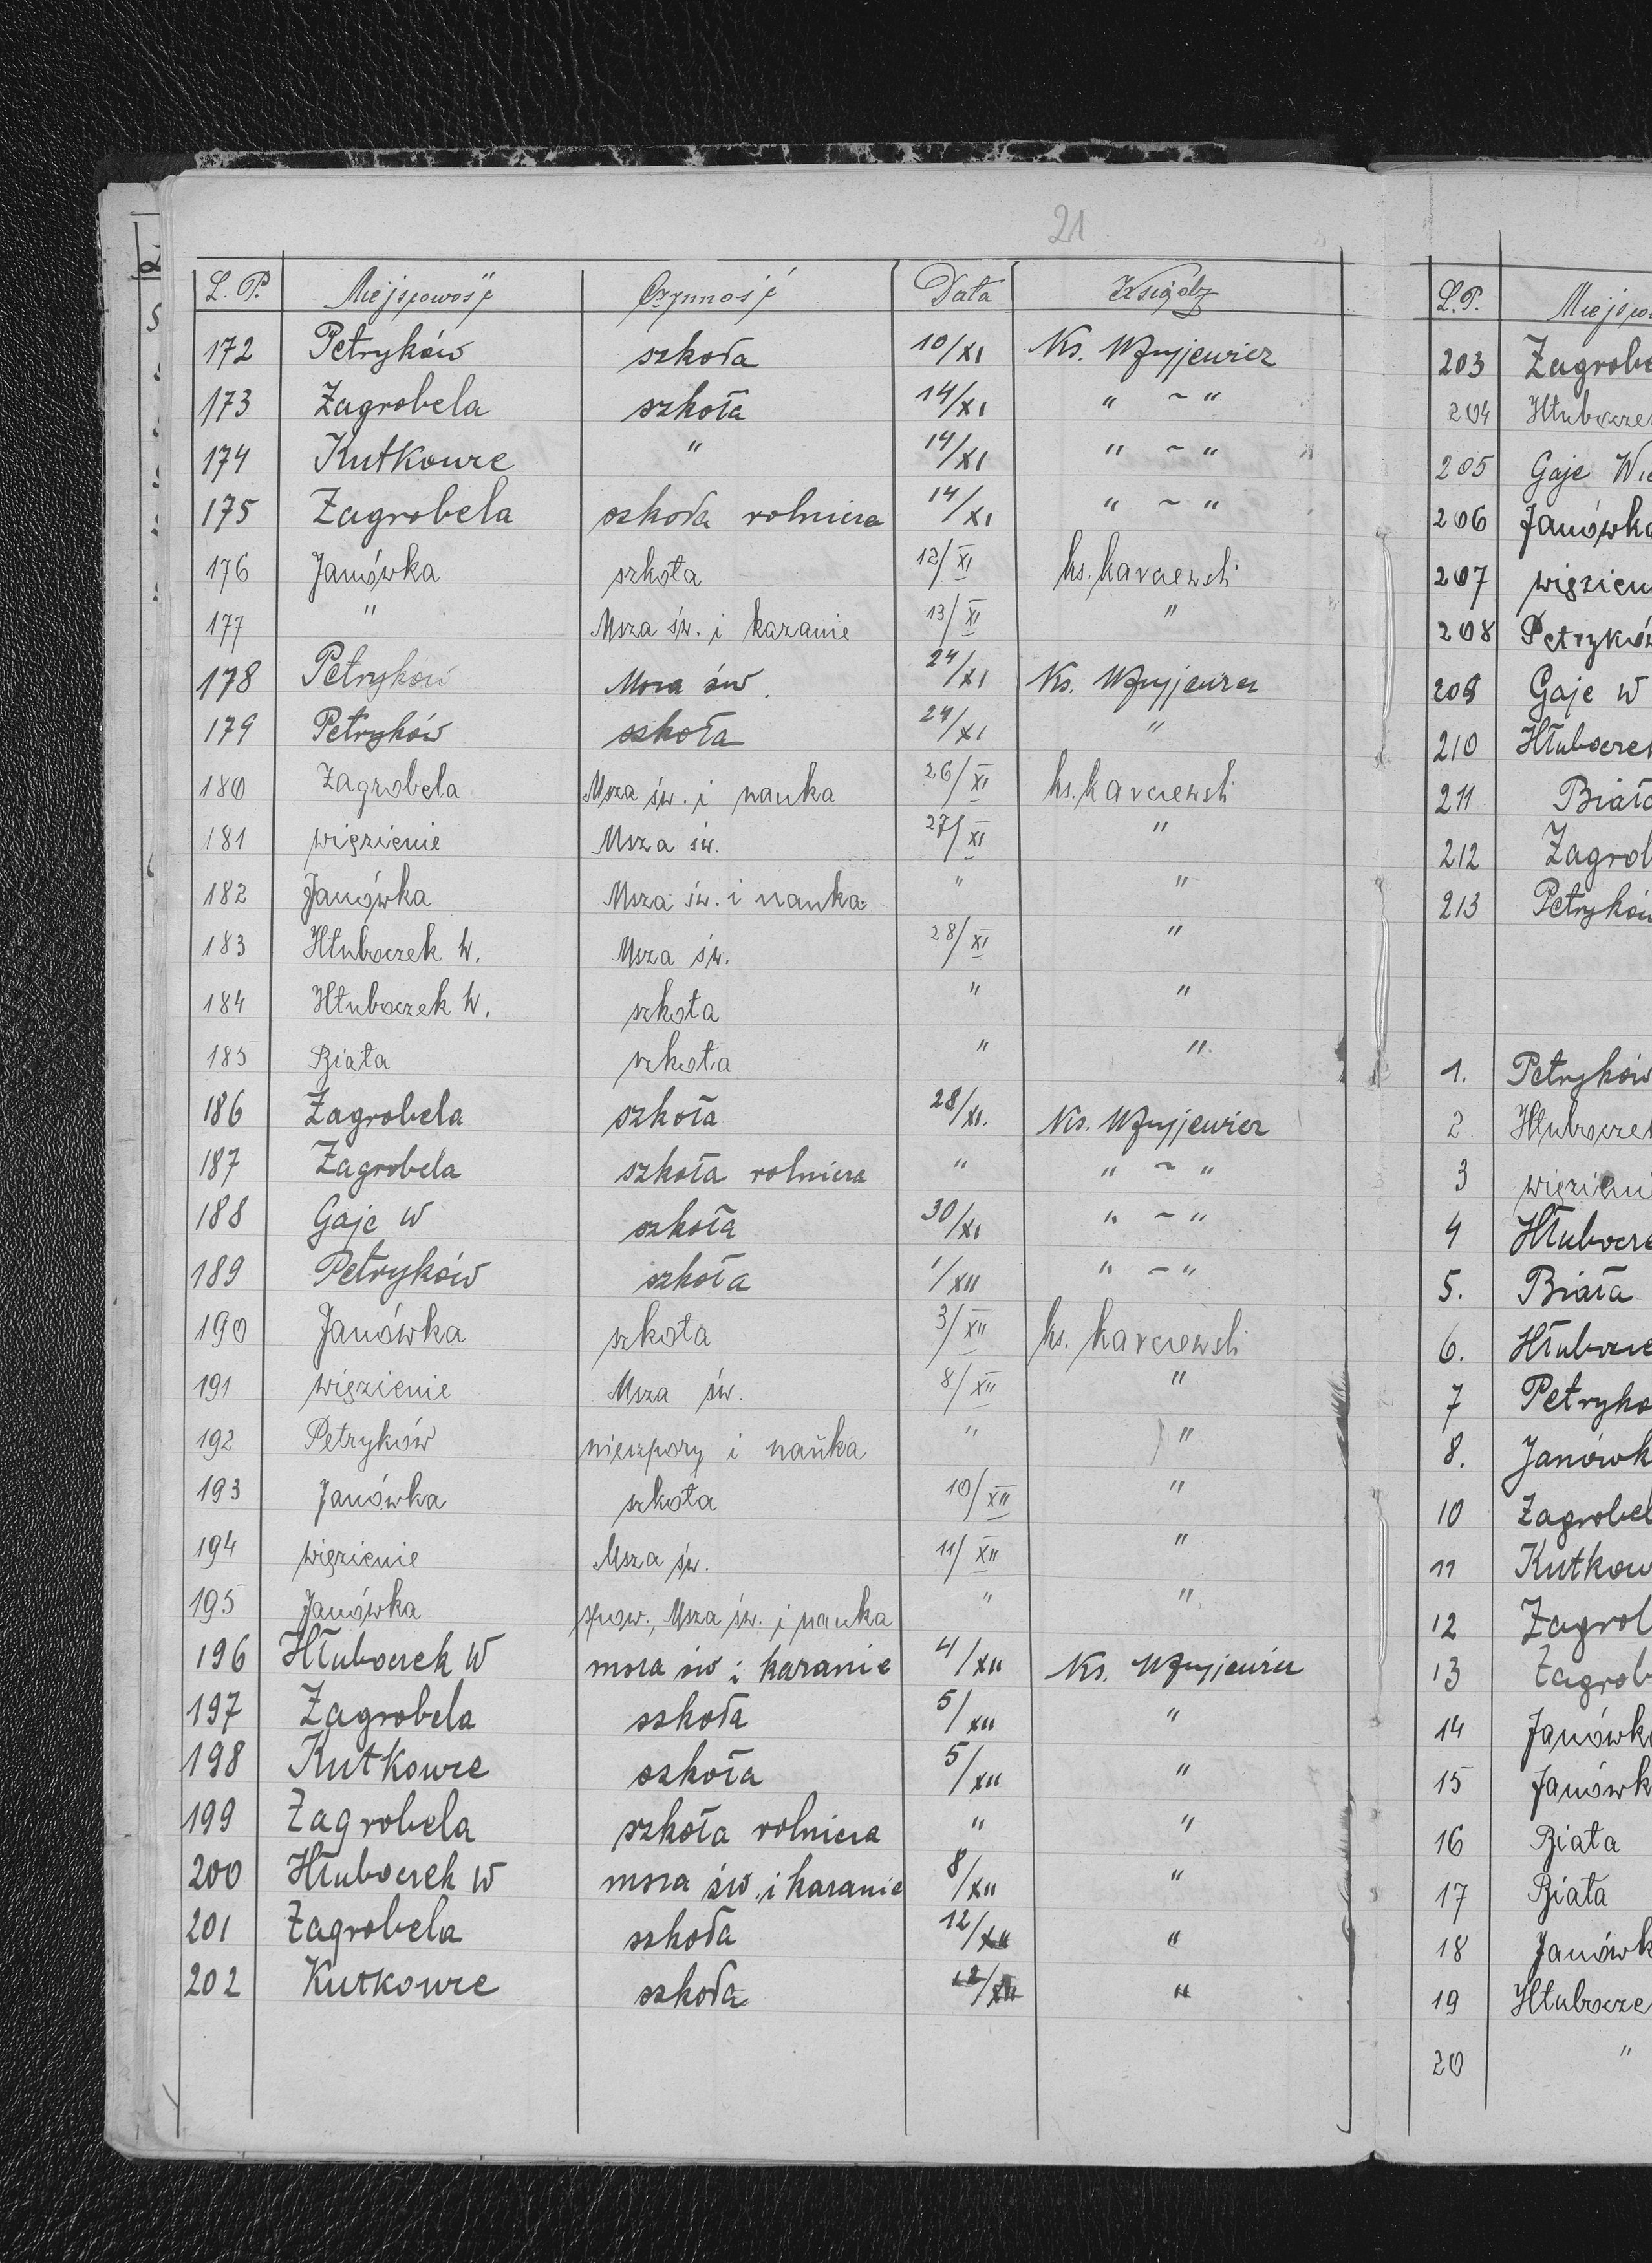 21
L. P. Miejscowość Czynność Data Ksiądz
172 Petryków szkoła 10/XI Ks.
173 Zagrobela szkoła 14/XI " ~ "
174 Kutkowce " 14/XI " ~ "
175 Zagrobela szkoła rolnicza 14/XI " ~ "
176 Janówka szkoła 12/XI ks. Karczewski
177 " Msza św. i kazanie 13/XI "
178 Petryków Msza św. 24/XI Ks.
179 Petryków szkoła 24/XI "
180 Zagrobela Msza św. i nauka 26/XI ks. Karczewski
181 więzienie Msza św. 27/XI "
182 Janówka Msza św. i nauka " "
183 Hłuboczek W. Msza św. 28/XI "
184 Hłuboczek W. szkoła " "
185 Biała szkoła " "
186 Zagrobela szkoła 28/XI. Ks.
187 Zagrobela szkoła rolnicza " " ~ "
188 Gaje W szkoła 30/XI " ~ "
189 Petryków szkoła 1/XII " ~ "
190 Janówka szkoła 3/XII ks. Karczewski
191 więzienie Msza św. 8/XII "
192 Petryków nieszpory i nauka " "
193 Janówka szkoła 10/XII "
194 więzienie Msza św. 11/XII "
195 Janówka spow., Msza św. i nauka " "
196 Hłuboczek W msza św i kazanie 4/XII Ks.
197 Zagrobela szkoła 5/XII "
198 Kutkowce szkoła 5/XII "
199 Zagrobela szkoła rolnicza " "
200 Hłuboczek W msza św. i kazanie 8/XII "
201 Zagrobela szkoła 12/XII "
202 Kutkowce szkoła 12/XII "
L.P. Miejsco
203 Zagrobe
204 Hłubocze
205 Gaje Wie
206 Janówka
207 więzien
208 Petryków
209 Gaje W
210 Hłuboczek
211 Biała
212 Zagrob
213 Petryków
1. Petryków
2. Hłuboczek
3 więzieni
4 Hłubocze
5. Biała
6. Hłubocze
7 Petryko
8. Janówk
10 Zagrobel
11 Kutkow
12 Zagrob
13 Zagrob
14 Janówk
15 Janówk
16 Biała
17 Biała
18 Janówk
19 Hłubocze
20 "